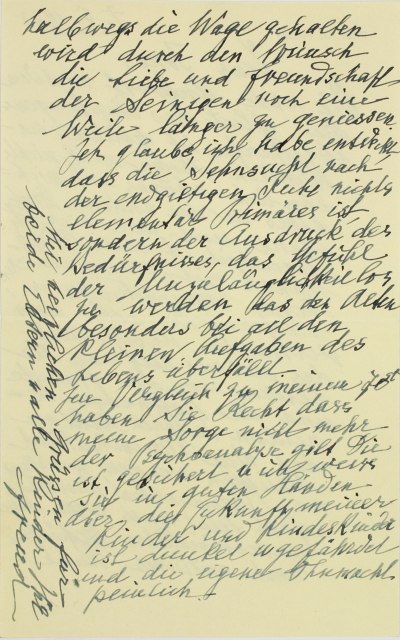 halbwegs die Wage gehalten
wird durch den Wunsch
die Liebe und Freundschaft
der Seinigen noch eine
Weile länger zu geniessen.
Ich glaube, ich habe entdeckt
dass die Sehnsucht nach
der endgiltigen Ruhe nichts
elementar Primäres ist,
sondern der Ausdruck des
Bedürfnisses, das Gefühl
der Unzulänglichkeit los
zu werden, das den Alten
besonders bei all den
kleinen Aufgaben des
Lebens überfällt.
Im Vergleich zu meinem 70st
haben Sie Recht dass
meine Sorge nicht mehr
der Psychoanalyse gilt. Die
ist gesichert u ich weiss
sie in guten Händen
Aber die Zukunft meiner
Kinder und Kindeskinder
ist dunkel u gefährdet
und die eigene Ohnmacht
peinlich.
Mit herzlichen Grüssen für
beide Eltern u alle Kinder Ihr
Freud